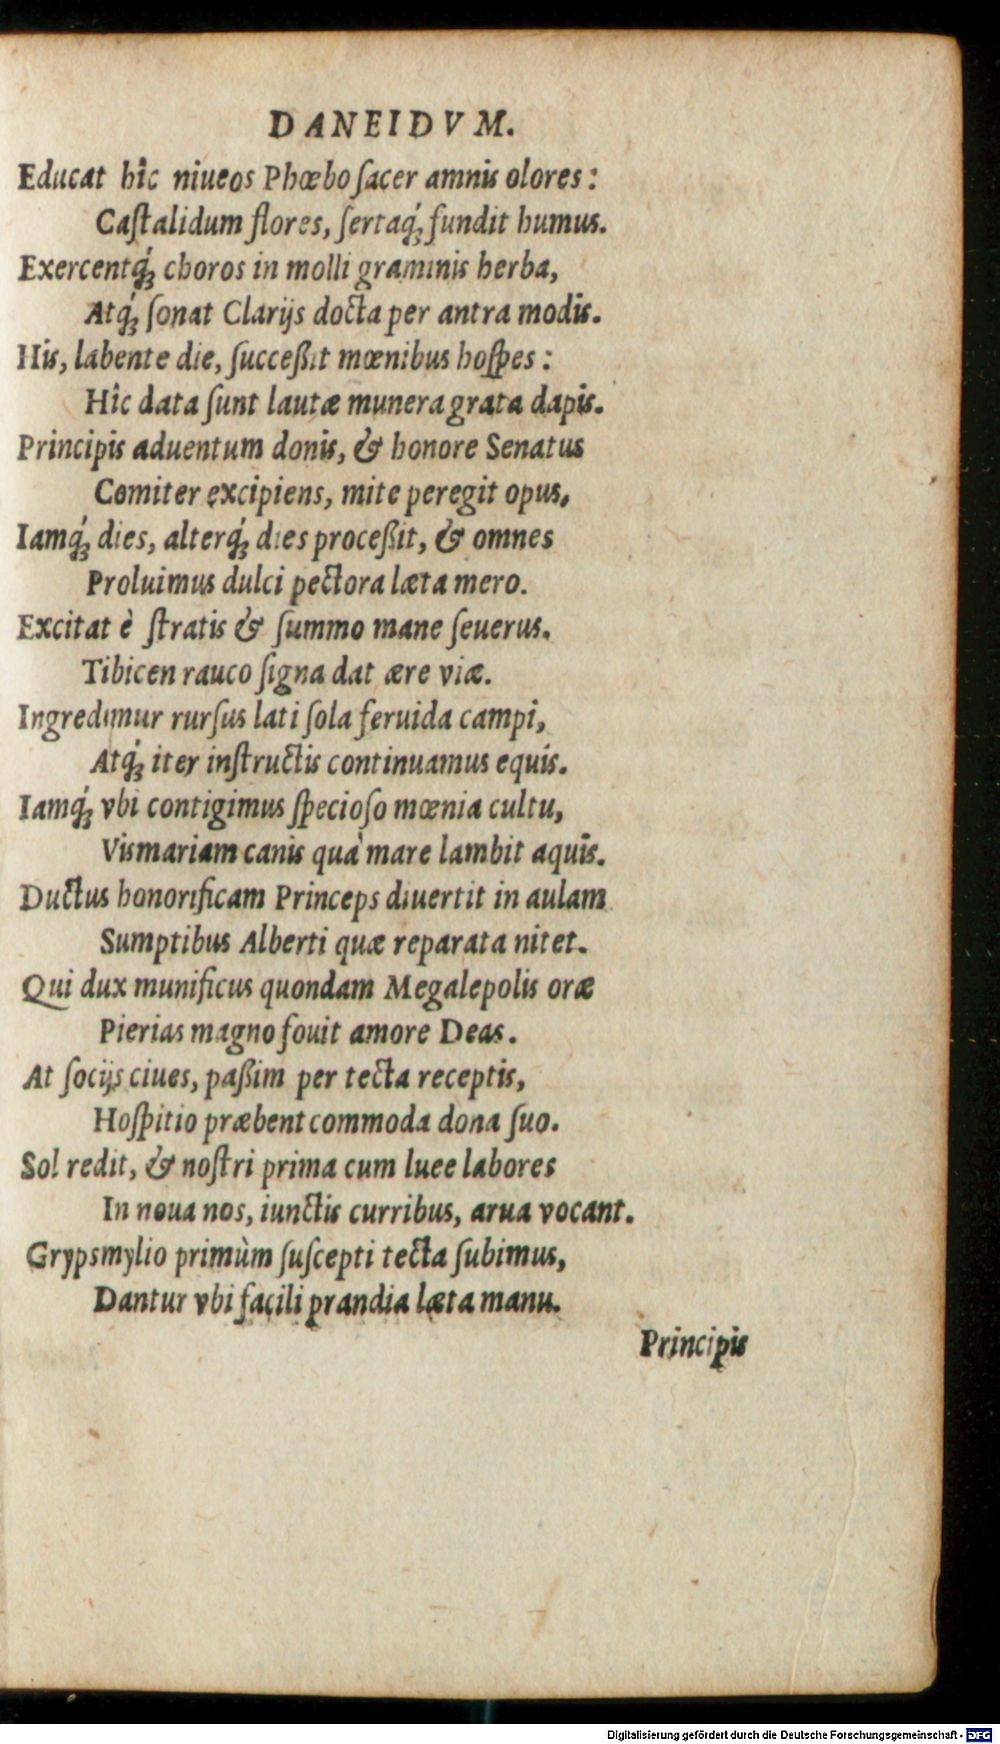 DANEIDVM.
Educat hîc niueos Phœbo ſacer amnis olores:
Caſtalidum flores, ſertaq́; fundit humus.
Exercentq́; choros in molli graminis herba,
Atq́; ſonat Clarijs docta per antra modis.
His, labente die, ſucceßit mœnibus hoſpes:
Hîc data ſunt lautæ munera grata dapis.
Principis aduentum donis, & honore Senatus
Comiter excipiens, mite peregit opus,
Iamq́; dies, alterq́; dies proceßit, & omnes
Proluimus dulci pectora læta mero.
Excitat è ſtratis & ſummo mane ſeuerus.
Tibicen rauco ſigna dat ære viæ.
Ingredimur rurſus lati ſola feruida campi,
Atq́; iter inſtructis continuamus equis.
Iamq́; vbi contigimus ſpecioſo mœnia cultu,
Vismariam canis quà mare lambit aquis.
Ductus honorificam Princeps diuertit in aulam
Sumptibus Alberti quæ reparata nitet.
Qui dux munificus quondam Megalepolis oræ
Pierias magno fouit amore Deas.
At ſocijs ciues, paßim per tecta receptis,
Hoſpitio præbent commoda dona ſuo.
Sol redit, & noſtri prima cum luce labores
In noua nos, iunctis curribus, arua vocant.
Grypsmylio primùm ſuſcepti tecta ſubimus,
Dantur vbi facili prandia læta manu.
Principis
Digitalisierung gefördert durch die Deutsche Forschungsgemeinschaft - DFG